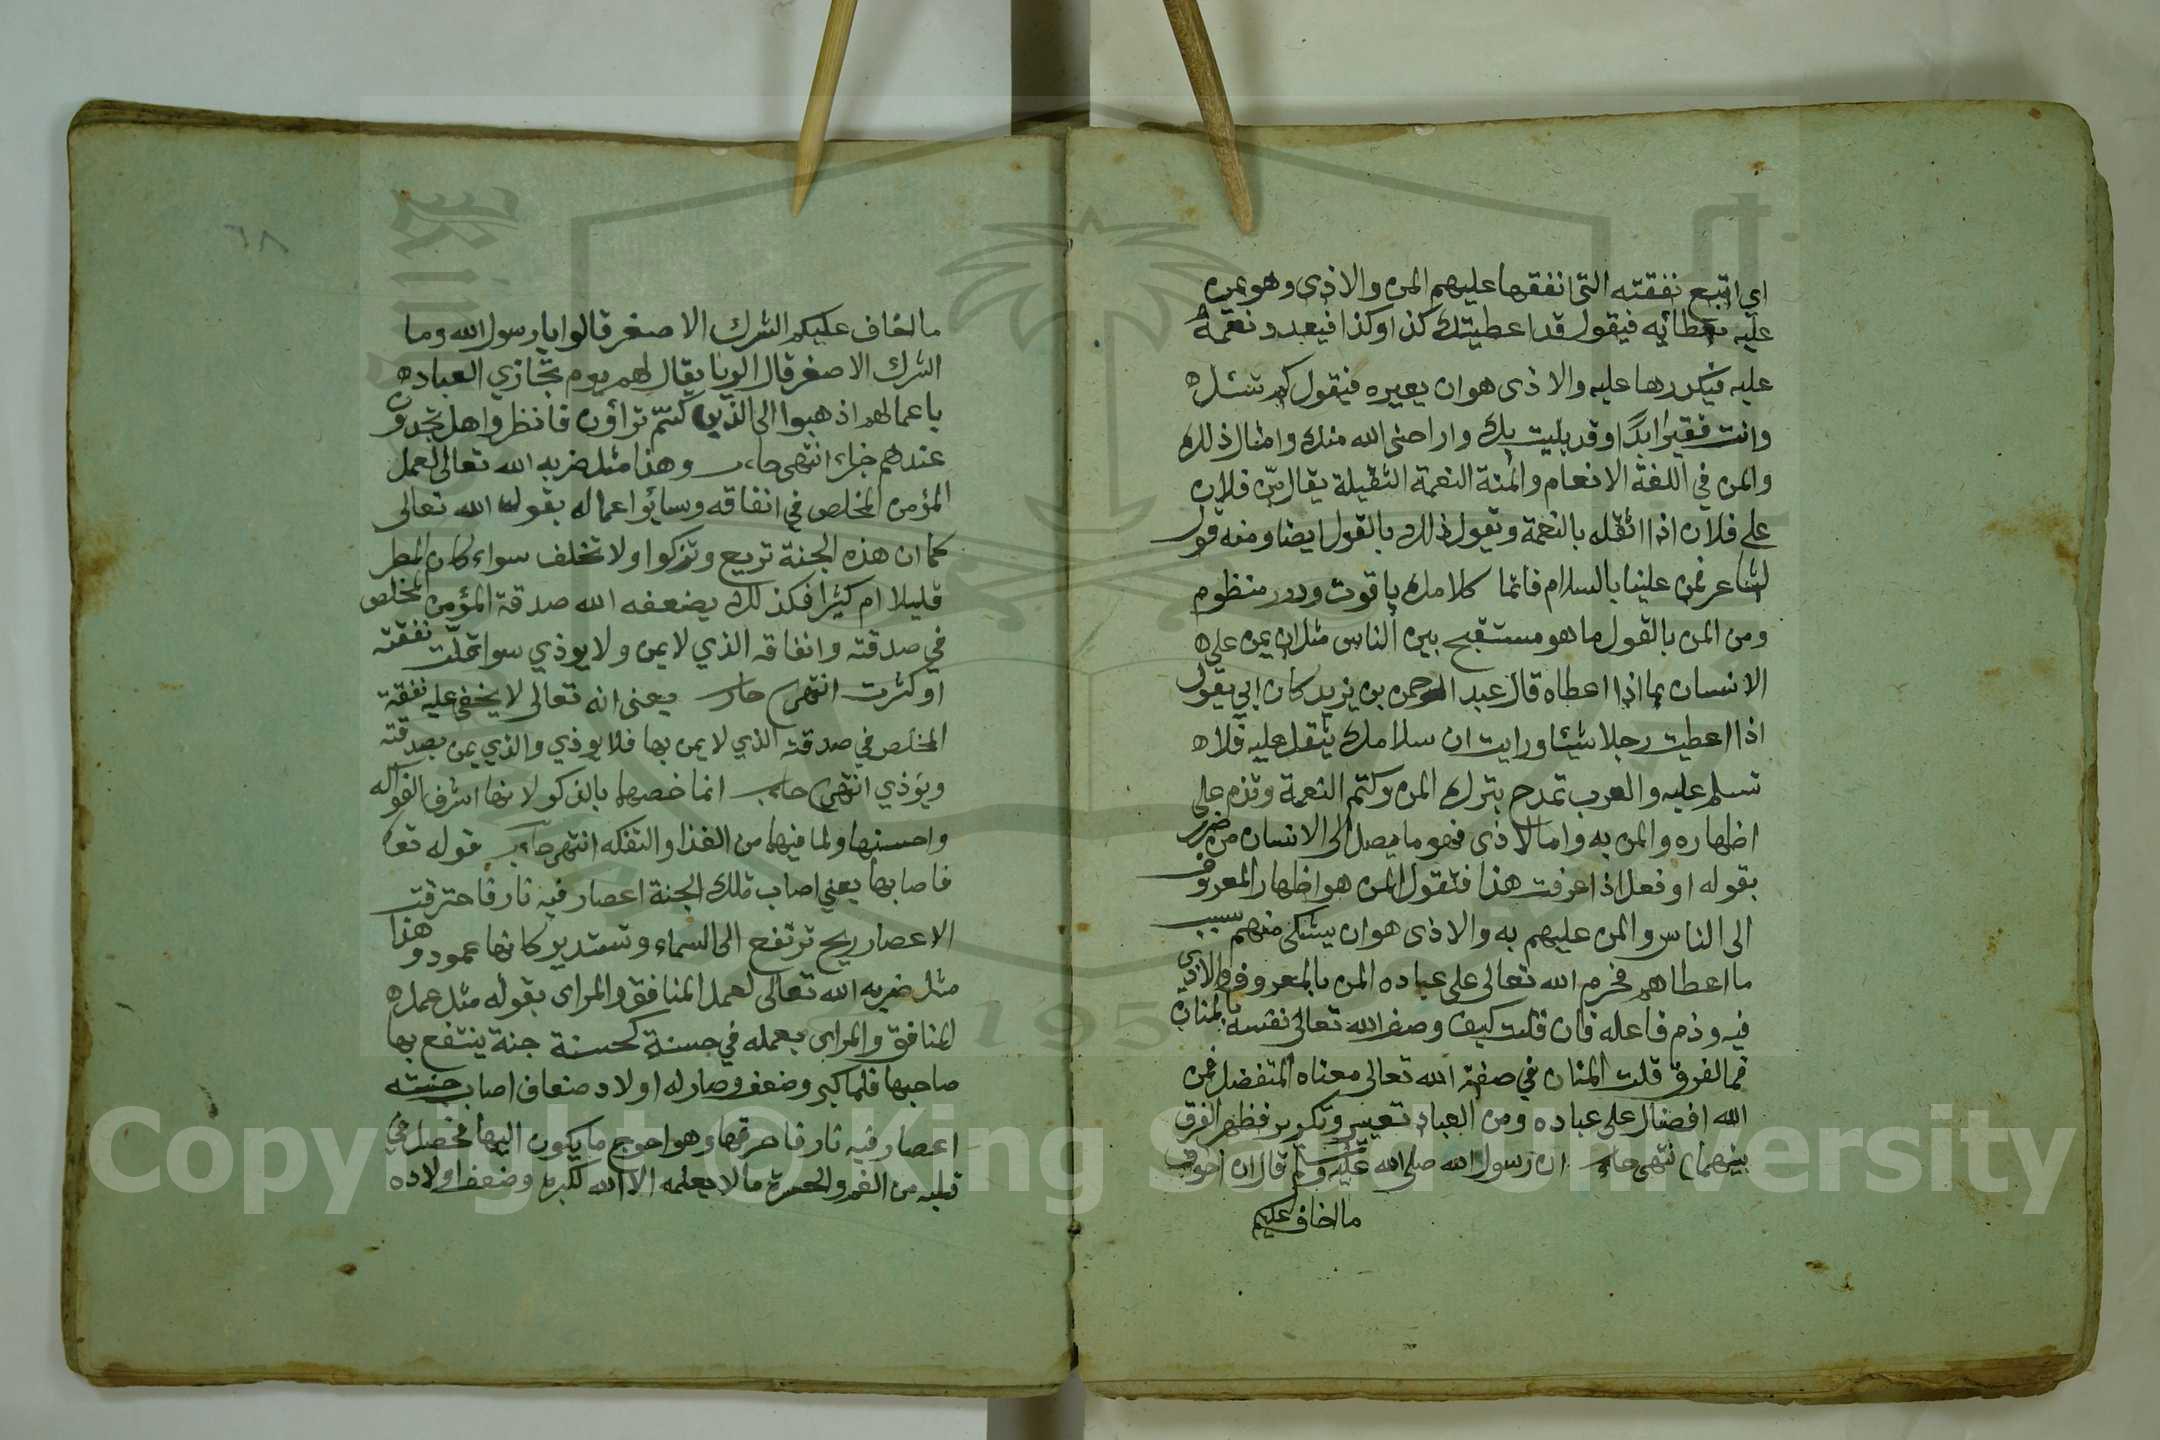 اي اتبع نفقته التي انفقها عليهم المن والاذى وهو يمن
عليه بعطائه فيقول قد اعطيتك كذا وكذا فيعدد نعمه
عليه فيكدرها عليه والاذى هو ان يعيره فيقول كم تسئل
وانت فقير ابدا وقد بليت بك واراحني الله منك وامثال ذلك
والمن في اللغة الانعام والمنة النعمة الثقيلة يقال من فلان
على فلان اذا اثقله بالنعمة ويقول ذلك بالقول ايضا ومنه قول
الشاعر فمن علينا بالسلام فانما كلامك ياقوت ودر منظوم
ومن المن بالقول ما هو مستقبح بين الناس مثل ان يمن على
الانسان بما اذا اعطاه قال عبد الرحمن بن يزيد كان ابي يقول
اذا اعطيت رجلا شيئا ورايت ان سلامك يثقل عليه فلا
تسلم عليه والعرب تمدح بترك المن وكتم النعمة وتذم على
اظهاره والمن به واما الاذى فهو ما يصل الى الانسان من ضرر
بقوله او فعل اذا عرفت هذا فنقول المن هو اظهار المعروف
الى الناس والمن عليهم به والاذى هو ان يشكى منهم بسبب
ما اعطاهم فحرم الله تعالى على عباده المن بالمعروف والاذى
فيه وذم فاعله فان قلت كيف وصف الله تعالى نفسه بالمنان
فما الفرق قلت المنان في صفة الله تعالى معناه المتفضل فمن
الله افضال على عباده ومن العباد تعيير وتكدير فظهر الفرق
بينهما انتهى ان رسول الله صلى الله عليه وسلم قال ان اخوف
ما اخاف عليكم
٦٨
ما اخاف عليكم الشرك الاصغر قالوا يا رسول الله وما
الشرك الاصغر قال الريا يقال لهم يوم تجازي العباد
باعمالهم اذهبوا الى الذين كنتم تراؤن فانظروا هل تجدون
عندهم جزاء انتهى وهذا مثل ضربه الله تعالى لعمل
المؤمن المخلص في انفاقه وسائر اعماله بقوله الله تعالى
كما ان هذه الجنة تريع وتزكوا ولا تخلف سواء كان المطر
قليلا ام كثيرا فكذلك يضعفه الله صدقة المؤمن المخلص
في صدقته وانفاقه الذي لا يمن ولا يوذي سوا قلت نفقته
او كثرت انتهى يعنى انه تعالى لا يخفى عليه نفقة
المخلص في صدقته الذي لا يمن بها فلا يوذي والذي يمن بصدقته
ويؤذي انتهى انما خصهما بالذكر لانها اشرف الفواكه
واحسنها ولما فيهما من الغذا والتفكه انتهى قوله تعا
فاصابها يعني اصاب تلك الجنة اعصار فيه نار فاحترقت
الاعصار ريح ترتفع الى السماء وتستدير كانها عمود وهذا
مثل ضربه الله تعالى لعمل المنافق والمرائى بقوله مثل عمل
المنافق والمرائى بعمله في حسنة كحسنة جنة ينتفع بها
صاحبها فلما كبر وضعف وصار له اولاد ضعاف اصاب جنته
اعصار فيه نار فاحرقها وهو احوج ما يكون اليها فحصل في
قلبه من الغم والحسرة مالا يعلمه الا الله لكبره وضعف اولاده
Copyright © King Saud University
1957